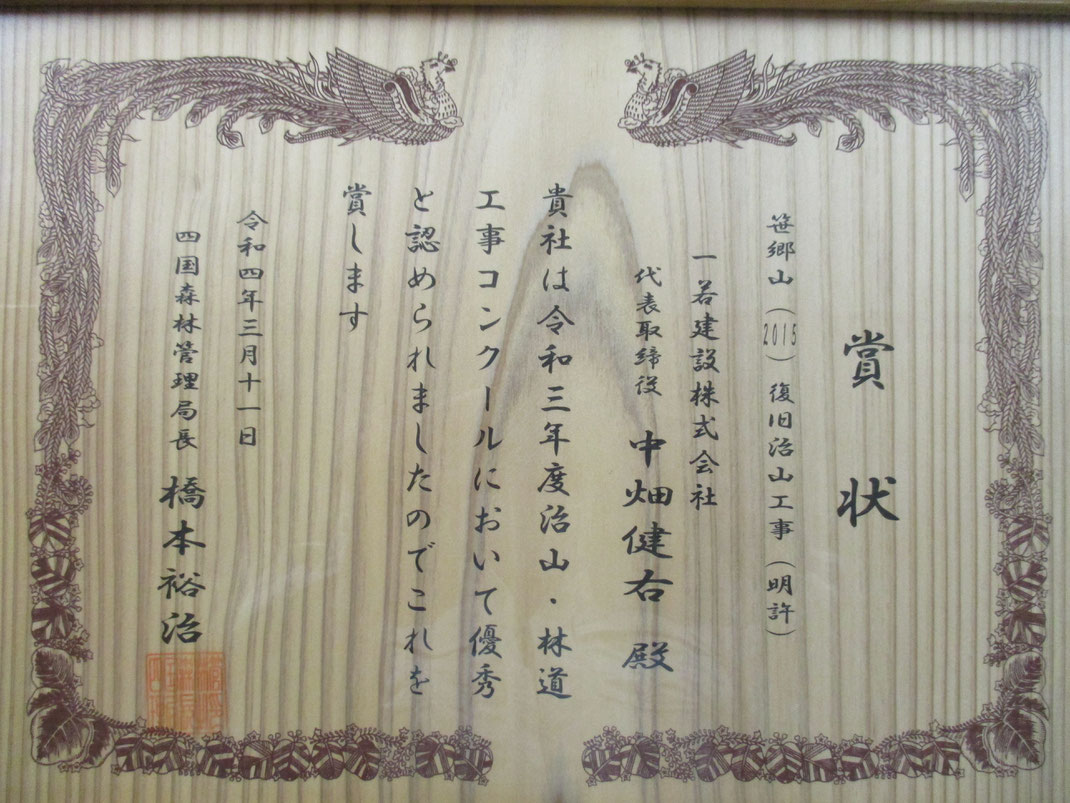 賞状
笹郷山(2015)復旧治山工事(明許)
一若建設株式会社
代表取締役 中畑健右 殿
貴社は令和三年度治山・林道
工事コンクールにおいて優秀
と認められましたのでこれを
賞します
令和四年三月十一日
四国森林管理局長 橋本裕治